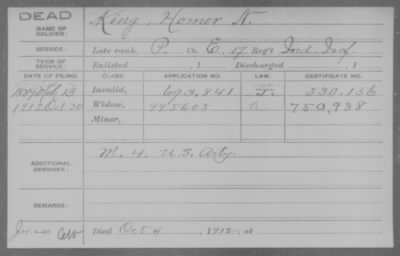 DEAD
NAME OF SOLDIER: King, Homer N.
SERVICE: Late rank, P. Co. E, 17 Reg't Ind. Inf
TERM OF SERVICE: Enlisted , 1 Discharged , 1
DATE OF FILING. CLASS. APPLICATION NO. LAW. CERTIFICATE NO.
Invalid, 841 530.156
1912 Oct 30 Widow, 995605 a 750,938
Minor,
ADDITIONAL SERVICES: M. 4. U.S. Arty.
REMARKS:
Died Oct 4 , 1912, at